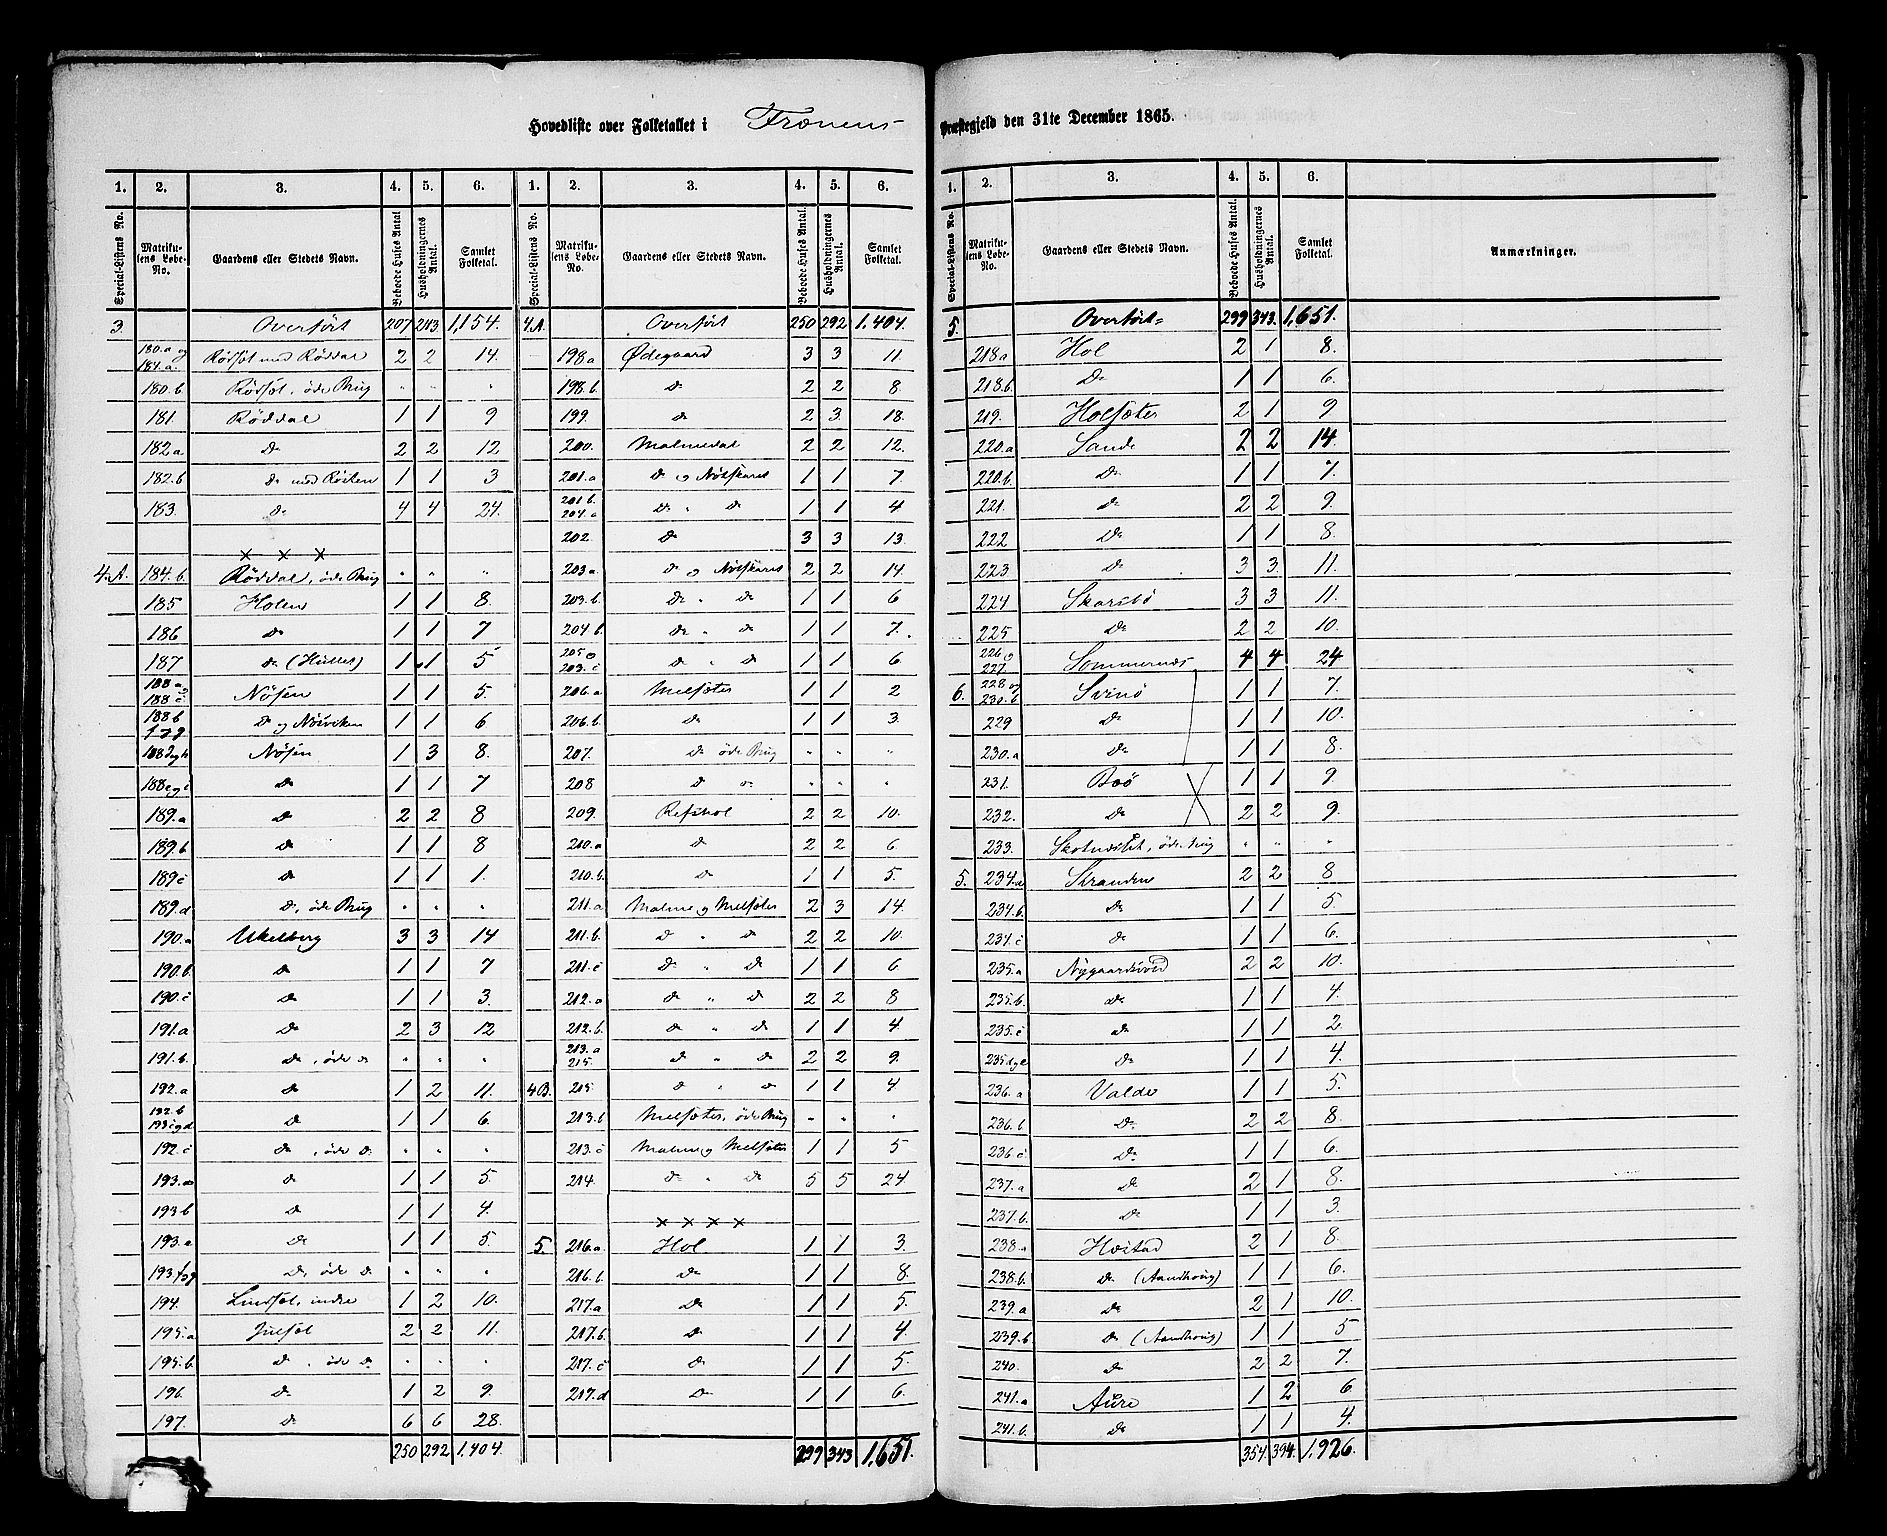 Hovedliste over Folketallet i Frænens Præstegjeld den 31te December 1865.
1. 2. 3. 4. 5. 6. 1. 2. 3. 4. 5. 6.
Special-Listens No. Matrikulens Løbe-No. Gaardens eller Stedets Navn. Beboede Huses Antal. Husholdningernes Antal. Samlet Folketal. Special-Listens No. Matrikulens Løbe-No. Gaardens eller Stedets Navn. Beboede Huses Antal. Husholdningernes Antal. Samlet Folketal.
3. Overført 207 243 1,154. 4.A. Overført 250 292 1,404.
180.a og 184.a. Rødsøl med Røddal 2 2 14. 198a Ødegaard 3 3 11.
180.b Rødsøl, øde Brug " " " 198.b. Do 2 2 8
181 Røddal 1 1 9 199. Do 2 3 18.
182a Do 2 2 12 200. Malmedal 2 2 12.
182.b Do med Røsten 1 1 3 201.a Do og Nøtskaret 1 1 7.
183. Do 4 4 24. 201.b. 204.a Do " Do 1 1 4
x x x 202. Do 3 3 13.
4.A. 184.b. Røddal, øde Brug " " " 203.a Do og Nøtskaret 2 2 14.
185 Holen 1 1 8. 203.b. Do " Do 1 1 6
186 Do 1 1 7 204.b. Do " Do 1 1 7.
187 Do (Hullet) 1 1 5 205 og 203.c Do " Do 1 1 6
188 a og 188 c Nøsen 1 1 5. 206.a Melsæter 1 1 2
188 b Do og Nøsviken 1 1 6 206.b. Do 1 1 3.
188 d og h Nøsen 1 3 8. 207. Do øde Brug " " "
188 e og i Do 1 1 7 208 Do " " " "
189.a Do 2 2 8 209. Refshol 2 2 10.
189.b Do 1 1 8 210.a Do 2 2 6
189 c Do 1 1 1. 210.b. Do 1 1 5.
189.d Do, øde Brug " " " 211.a Malme og Melsæter 2 3 14.
190.a Ukelberg 3 3 14 211.b. Do " Do 2 2 10.
190.b. Do 1 1 7 211.c Do " Do 1 1 6
190.c Do 1 1 3. 212.a Do " Do 2 2 8
191.a Do 2 3 12 212.b. Do " Do 1 1 4.
191.b. Do, øde Do " " " 213.a 215. Do " Do 2 2 9.
192.a Do 1 2 11. 4B. 215. Do " Do 1 1 4
192.b 193 c og d Do 1 1 6. 213.b Melsæter, øde Brug " " "
192.c Do, øde Do " " " 213.c Malme og Melsæter 1 1 5
193.a Do 1 1 5. 214. Do " Do 5 5 24
193 b Do 1 1 4. x x x x
193.a Do 1 1 5. 5. 216.a. Hol 1 1 3.
193 f og g Do, øde Do " " " 216.b. Do 1 1 8.
194. Lindsøl, indre 1 2 10. 217.a Do 1 1 5.
195.a Julsøl 2 2 11. 217.b. Do 1 1 4.
195.b. Do, øde Do " " " 217.c Do 1 1 5.
196. Do 1 2 9. 217.d Do 1 1 6.
197. Do 6 6 28.
250 292 1,404. 299 343 1,651.
1. 2. 3. 4. 5. 6.
Special-Listens No. Matrikulens Løbe-No. Gaardens eller Stedets Navn. Beboede Huses Antal. Husholdningernes Antal. Samlet Folketal. Anmærkninger.
5. Overført 299 343. 1,651.
218a Hol 2 1 8.
218.b. Do 1 1 6.
219. Holsæter 2 1 9
220.a Sande 2 2 14.
220.b. Do 1 1 7.
221. Do 2 2 9.
222 Do 1 1 8.
223 Do 3 3 11.
224 Skarsbø 3 3 11.
225 Do 2 2 10.
226 og 227. Sommernæs 4 4 24
6. 228 og 230.b Svinø 1 1 7.
229 Do 1 1 10.
230.a Do 1 1 8
231. Boø 1 1 9.
232. Do 2 2 9.
233. Skotnæslet, øde Brug " " "
5. 234.a Stranden 2 2 8
234.b. Do 1 1 5
234.c Do 1 1 6.
235.a Nygaardsvold 2 2 10.
235.b. Do 1 1 4.
235.c Do 1 1 2.
235 d og e Do 1 1 4.
236.a Valde 1 1 5.
236.b Do 2 2 8.
236 c Do 1 1 6.
237.a Do 2 1 8.
237.b. Do 1 1 3.
238.a Hostad 2 1 8
238.b. Do (Aandhoug) 1 1 6.
239.a Do 2 1 10.
239.b Do (Aandhoug) 1 1 5
240. Do 2 2 7.
241.a Aure 1 2 6
241.b. Do 1 1 4.
354. 394. 1,926.